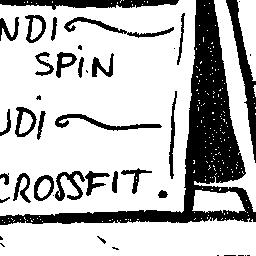 NDI
SPIN
UDI
CROSSFIT.